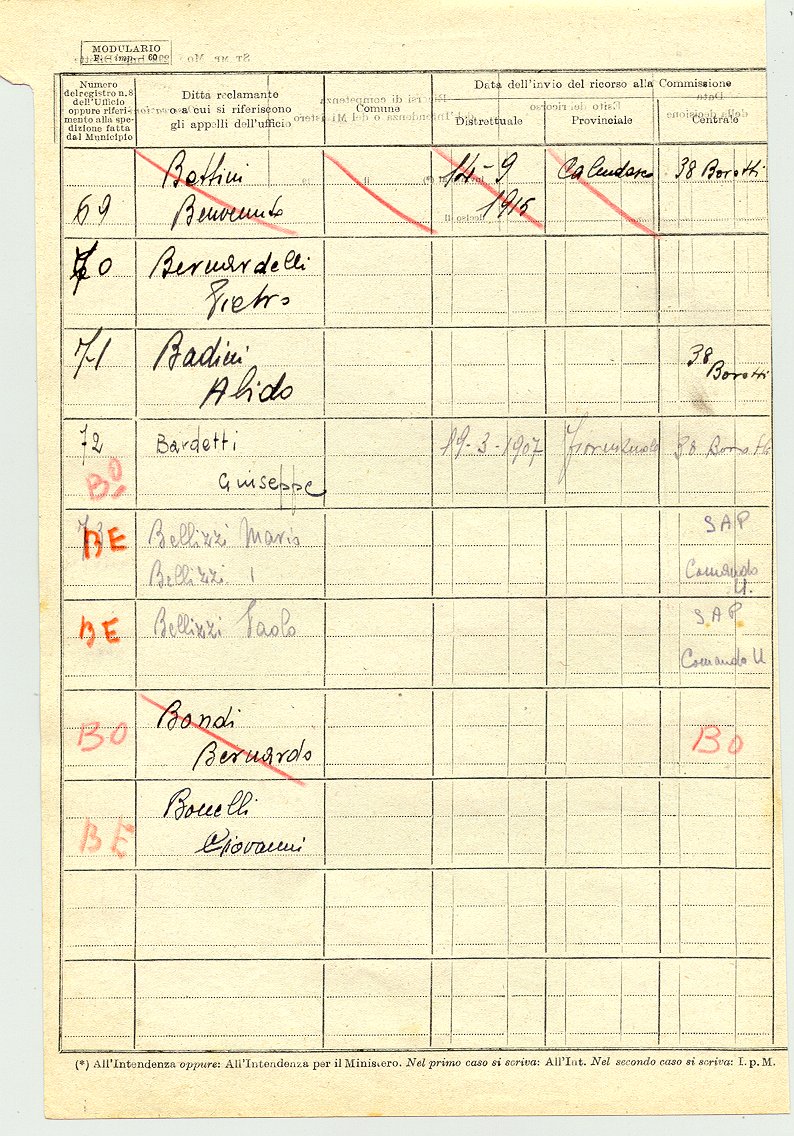 MODULARIO
F. imp. 60
Numero
del registro n. 8
dell'Ufficio
oppure riferi-
mento alla spe-
dizione fatta
dal Municipio
Ditta reclamante
o a cui si riferiscono
gli appelli dell'ufficio
Comune
Data dell'invio del ricorso alla Commissione
Distrettuale
Provinciale
Centrale
69
Bottini
Benvenuto
14-9
1915
Calendasco
38 Borotti
70
Bernardelli
Pietro
71
Badini
Alido
38
Borotti
72
BO
Bardetti
Giuseppe
19-3-1907
Fiorenzuola
38 Borotti
73
BE
Bellizzi Mario
Bellizzi
SAP
Comando
U.
BE
Bellizzi Paolo
SAP
Comando U
BO
Bondi
Bernardo
BO
BE
Bonelli
Giovanni
(*) All'Intendenza oppure: All'Intendenza per il Ministero. Nel primo caso si scriva: All'Int. Nel secondo caso si scriva: I. p. M.